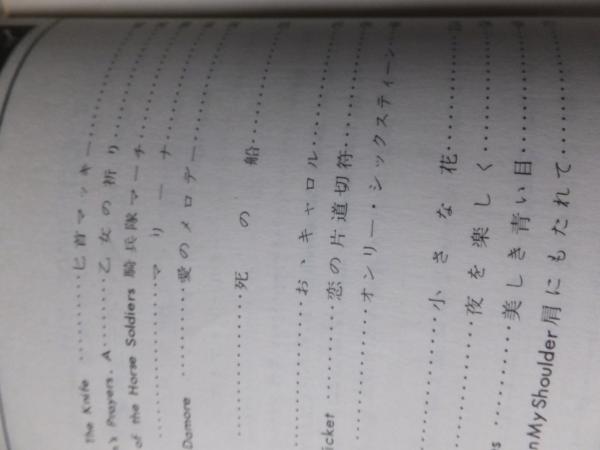 The Knife ………匕首マッキー…………
n's Prayers, A………乙女の祈り…………
of the Horse Soldiers 騎兵隊マーチ…………
…………マリーナ…………
Damore …………愛のメロデー…………
…………死の船…………
…………おゝキャロル…………
icket …………恋の片道切符…………
…………オンリー・シックスティーン……
…………小さな花…………
…………夜を楽しく…………
s …………美しき青い目…………
nMyShoulder 肩にもたれて…………